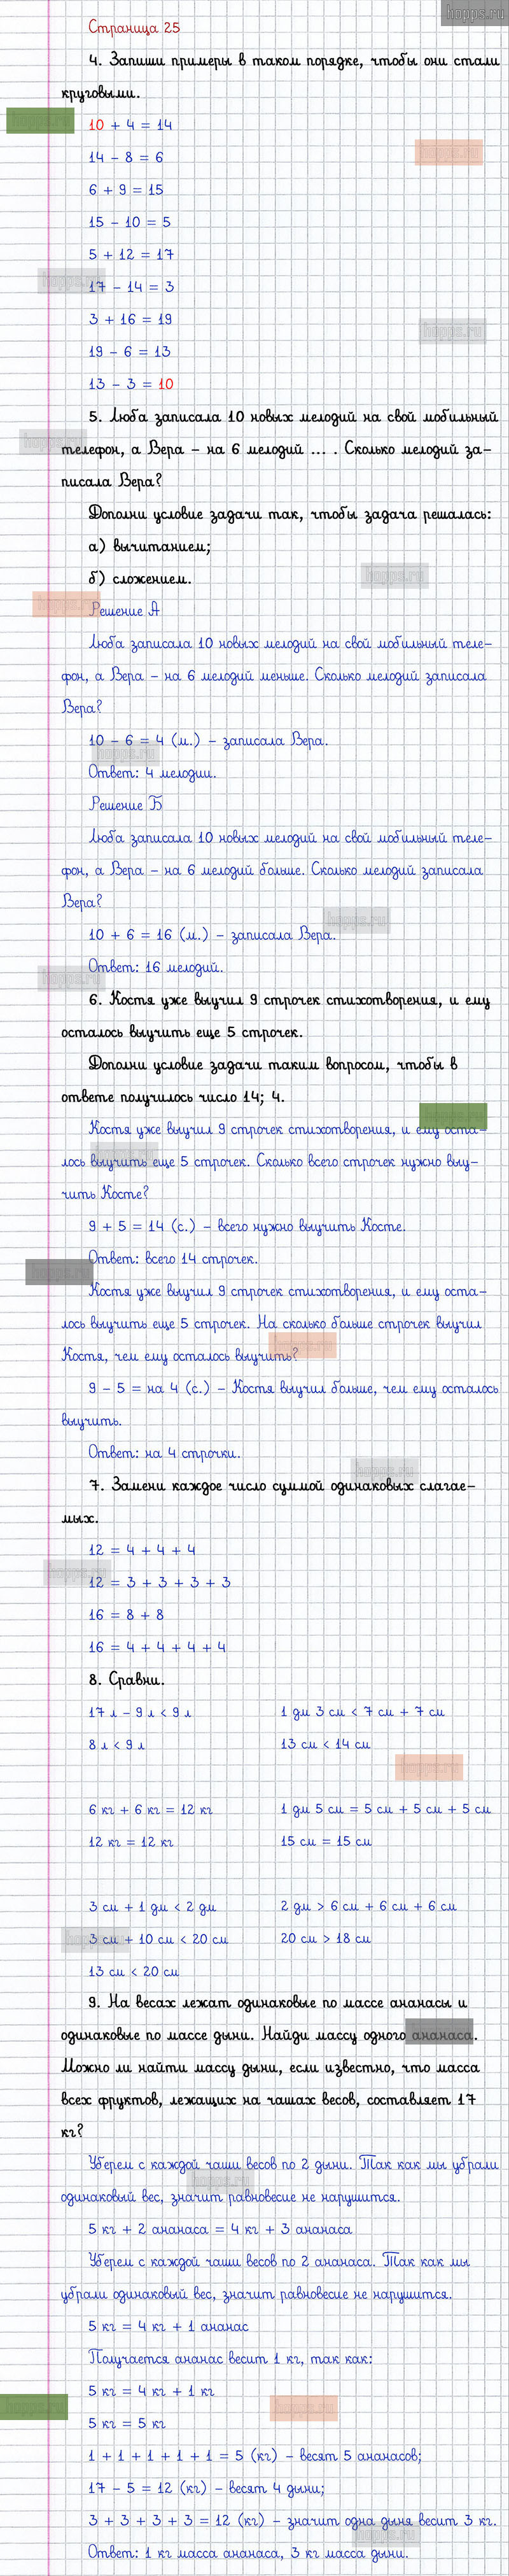 hopps.ru
Страница 25
4. Запиши примеры в таком порядке, чтобы они стали
круговыми.
10 + 4 = 14
14 - 8 = 6
6 + 9 = 15
15 - 10 = 5
5 + 12 = 17
17 - 14 = 3
3 + 16 = 19
19 - 6 = 13
13 - 3 = 10
5. Люба записала 10 новых мелодий на свой мобильный
телефон, а Вера - на 6 мелодий ... . Сколько мелодий за-
писала Вера?
Дополни условие задачи так, чтобы задача решалась:
а) вычитанием;
б) сложением.
Решение А
Люба записала 10 новых мелодий на свой мобильный теле-
фон, а Вера - на 6 мелодий меньше. Сколько мелодий записала
Вера?
10 - 6 = 4 (м.) - записала Вера.
Ответ: 4 мелодии.
Решение Б
Люба записала 10 новых мелодий на свой мобильный теле-
фон, а Вера - на 6 мелодий больше. Сколько мелодий записала
Вера?
10 + 6 = 16 (м.) - записала Вера.
Ответ: 16 мелодий.
6. Костя уже выучил 9 строчек стихотворения, и ему
осталось выучить еще 5 строчек.
Дополни условие задачи таким вопросом, чтобы в
ответе получилось число 14; 4.
Костя уже выучил 9 строчек стихотворения, и ему оста-
лось выучить еще 5 строчек. Сколько всего строчек нужно выу-
чить Косте?
9 + 5 = 14 (с.) - всего нужно выучить Косте.
Ответ: всего 14 строчек.
Костя уже выучил 9 строчек стихотворения, и ему оста-
лось выучить еще 5 строчек. На сколько больше строчек выучил
Костя, чем ему осталось выучить?
9 - 5 = на 4 (с.) - Костя выучил больше, чем ему осталось
выучить.
Ответ: на 4 строчки.
7. Замени каждое число суммой одинаковых слагае-
мых.
12 = 4 + 4 + 4
12 = 3 + 3 + 3 + 3
16 = 8 + 8
16 = 4 + 4 + 4 + 4
8. Сравни.
17 л - 9 л < 9 л 1 дм 3 см < 7 см + 7 см
8 л < 9 л 13 см < 14 см
6 кг + 6 кг = 12 кг 1 дм 5 см = 5 см + 5 см + 5 см
12 кг = 12 кг 15 см = 15 см
3 см + 1 дм < 2 дм 2 дм > 6 см + 6 см + 6 см
3 см + 10 см < 20 см 20 см > 18 см
13 см < 20 см
9. На весах лежат одинаковые по массе ананасы и
одинаковые по массе дыни. Найди массу одного ананаса.
Можно ли найти массу дыни, если известно, что масса
всех фруктов, лежащих на чашах весов, составляет 17
кг?
Уберем с каждой чаши весов по 2 дыни. Так как мы убрали
одинаковый вес, значит равновесие не нарушится.
5 кг + 2 ананаса = 4 кг + 3 ананаса
Уберем с каждой чаши весов по 2 ананаса. Так как мы
убрали одинаковый вес, значит равновесие не нарушится.
5 кг = 4 кг + 1 ананас
Получается ананас весит 1 кг, так как:
5 кг = 4 кг + 1 кг
5 кг = 5 кг
1 + 1 + 1 + 1 + 1 = 5 (кг) - весят 5 ананасов;
17 - 5 = 12 (кг) - весят 4 дыни;
3 + 3 + 3 + 3 = 12 (кг) - значит одна дыня весит 3 кг.
Ответ: 1 кг масса ананаса, 3 кг масса дыни.